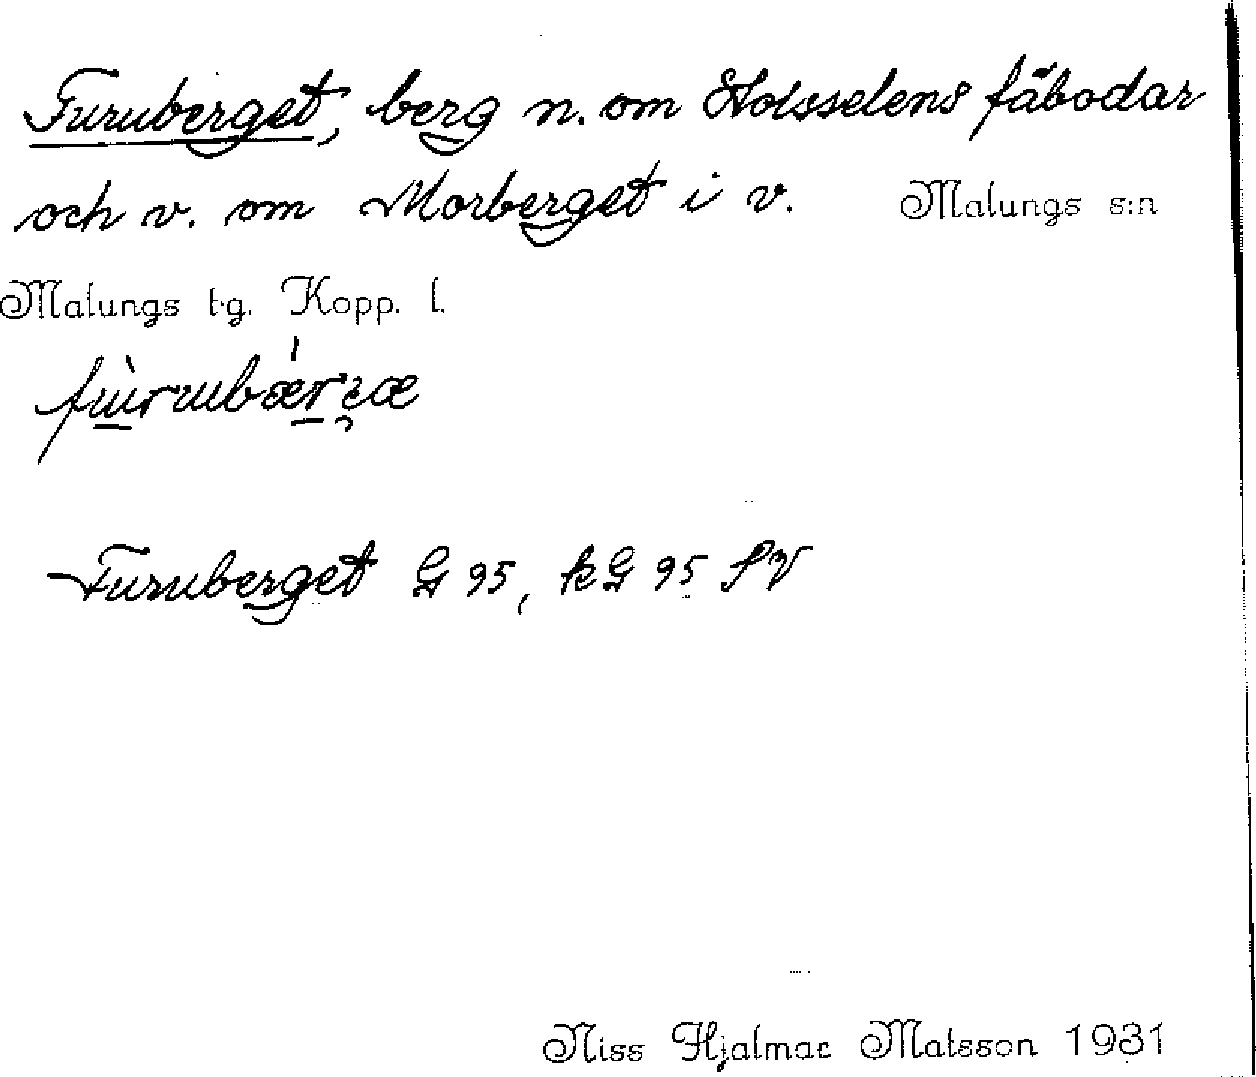 Furuberget, berg n. om Holsselens fäbodar
och v. om Morberget i v. Malungs s:n
Malungs t·g. Kopp. l.
Furuberget G 95, kG 95 SV
Niss Hjalmar Matsson 1931